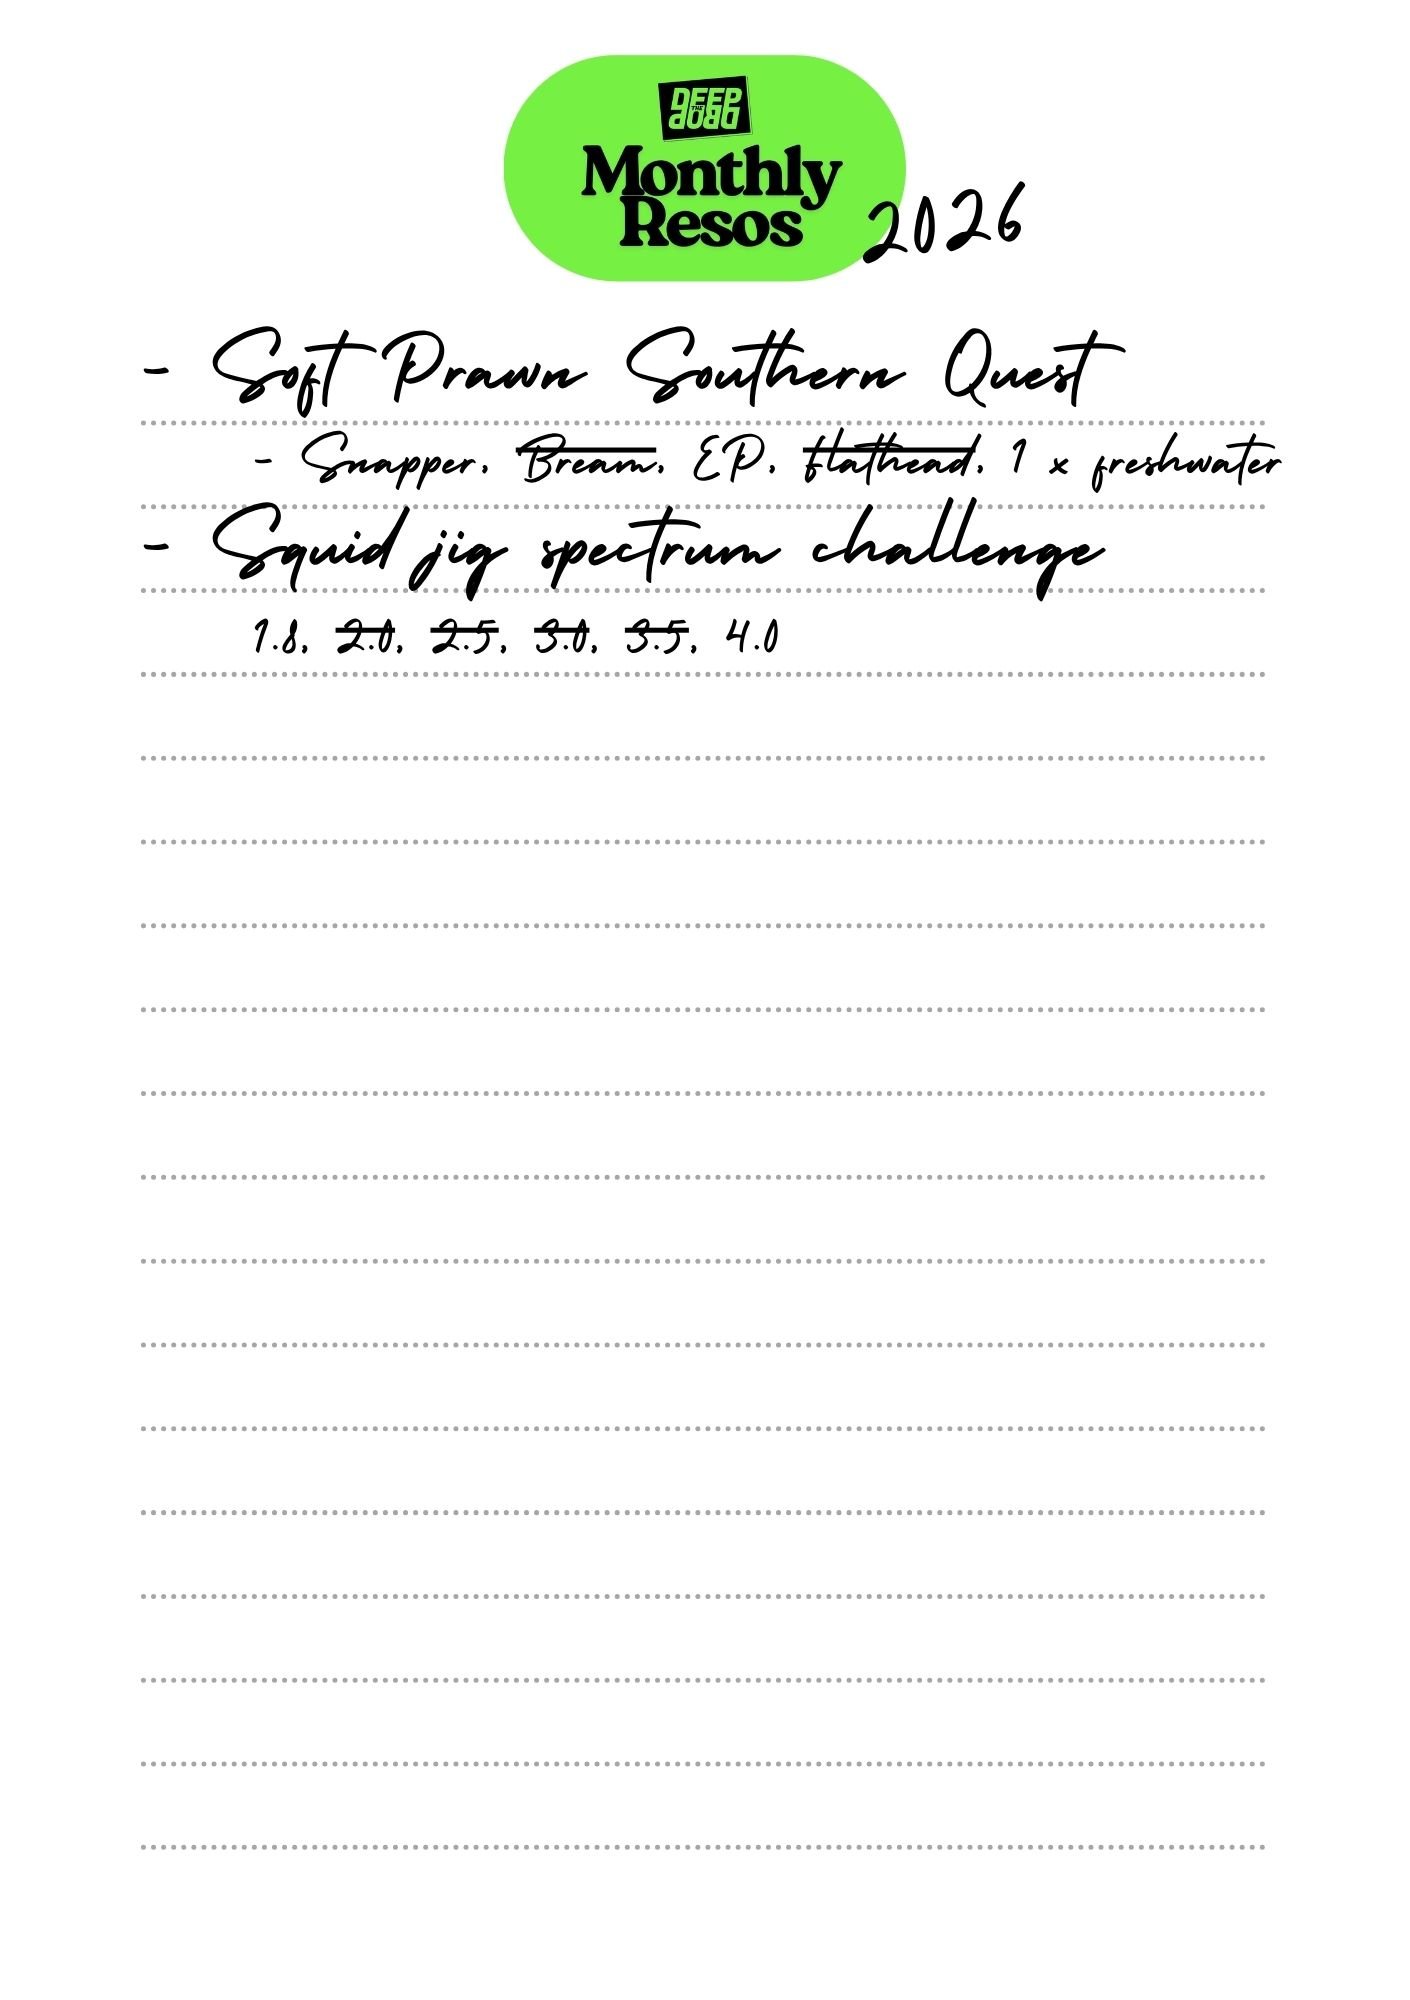 DEEP
THE
DROP
Monthly
Resos 2026
- Soft Prawn Southern Quest
- Snapper, Bream, EP, flathead, 1 x freshwater
- Squid jig spectrum challenge
1.8, 2.0, 2.5, 3.0, 3.5, 4.0